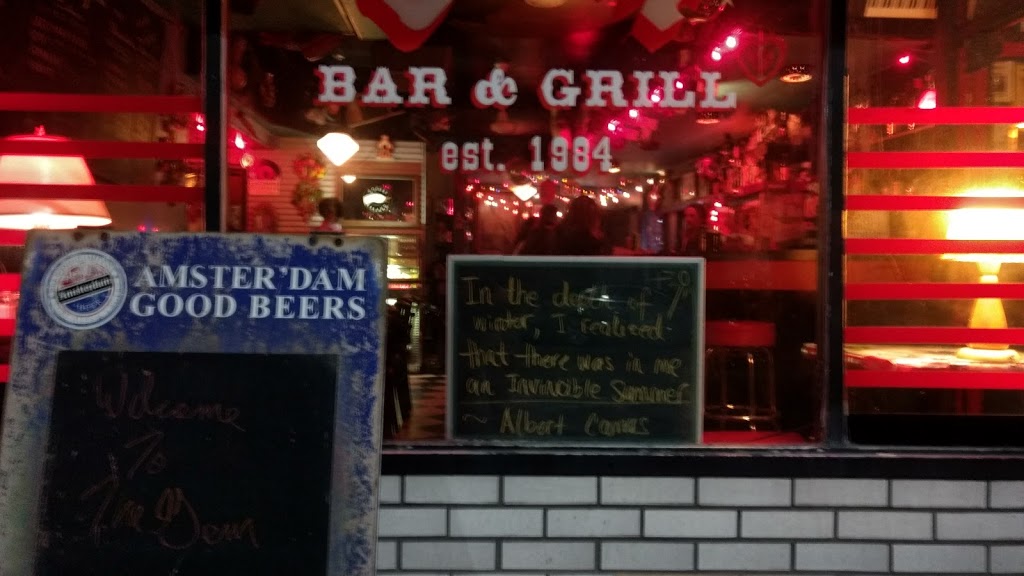 BAR & GRILL
est. 1984
AMSTER'DAM
GOOD BEERS
Amsterdam
Welcome
To
The Gem
In the depth of
winter, I realised
that there was in me
an Invincible Summer
~ Albert Camus